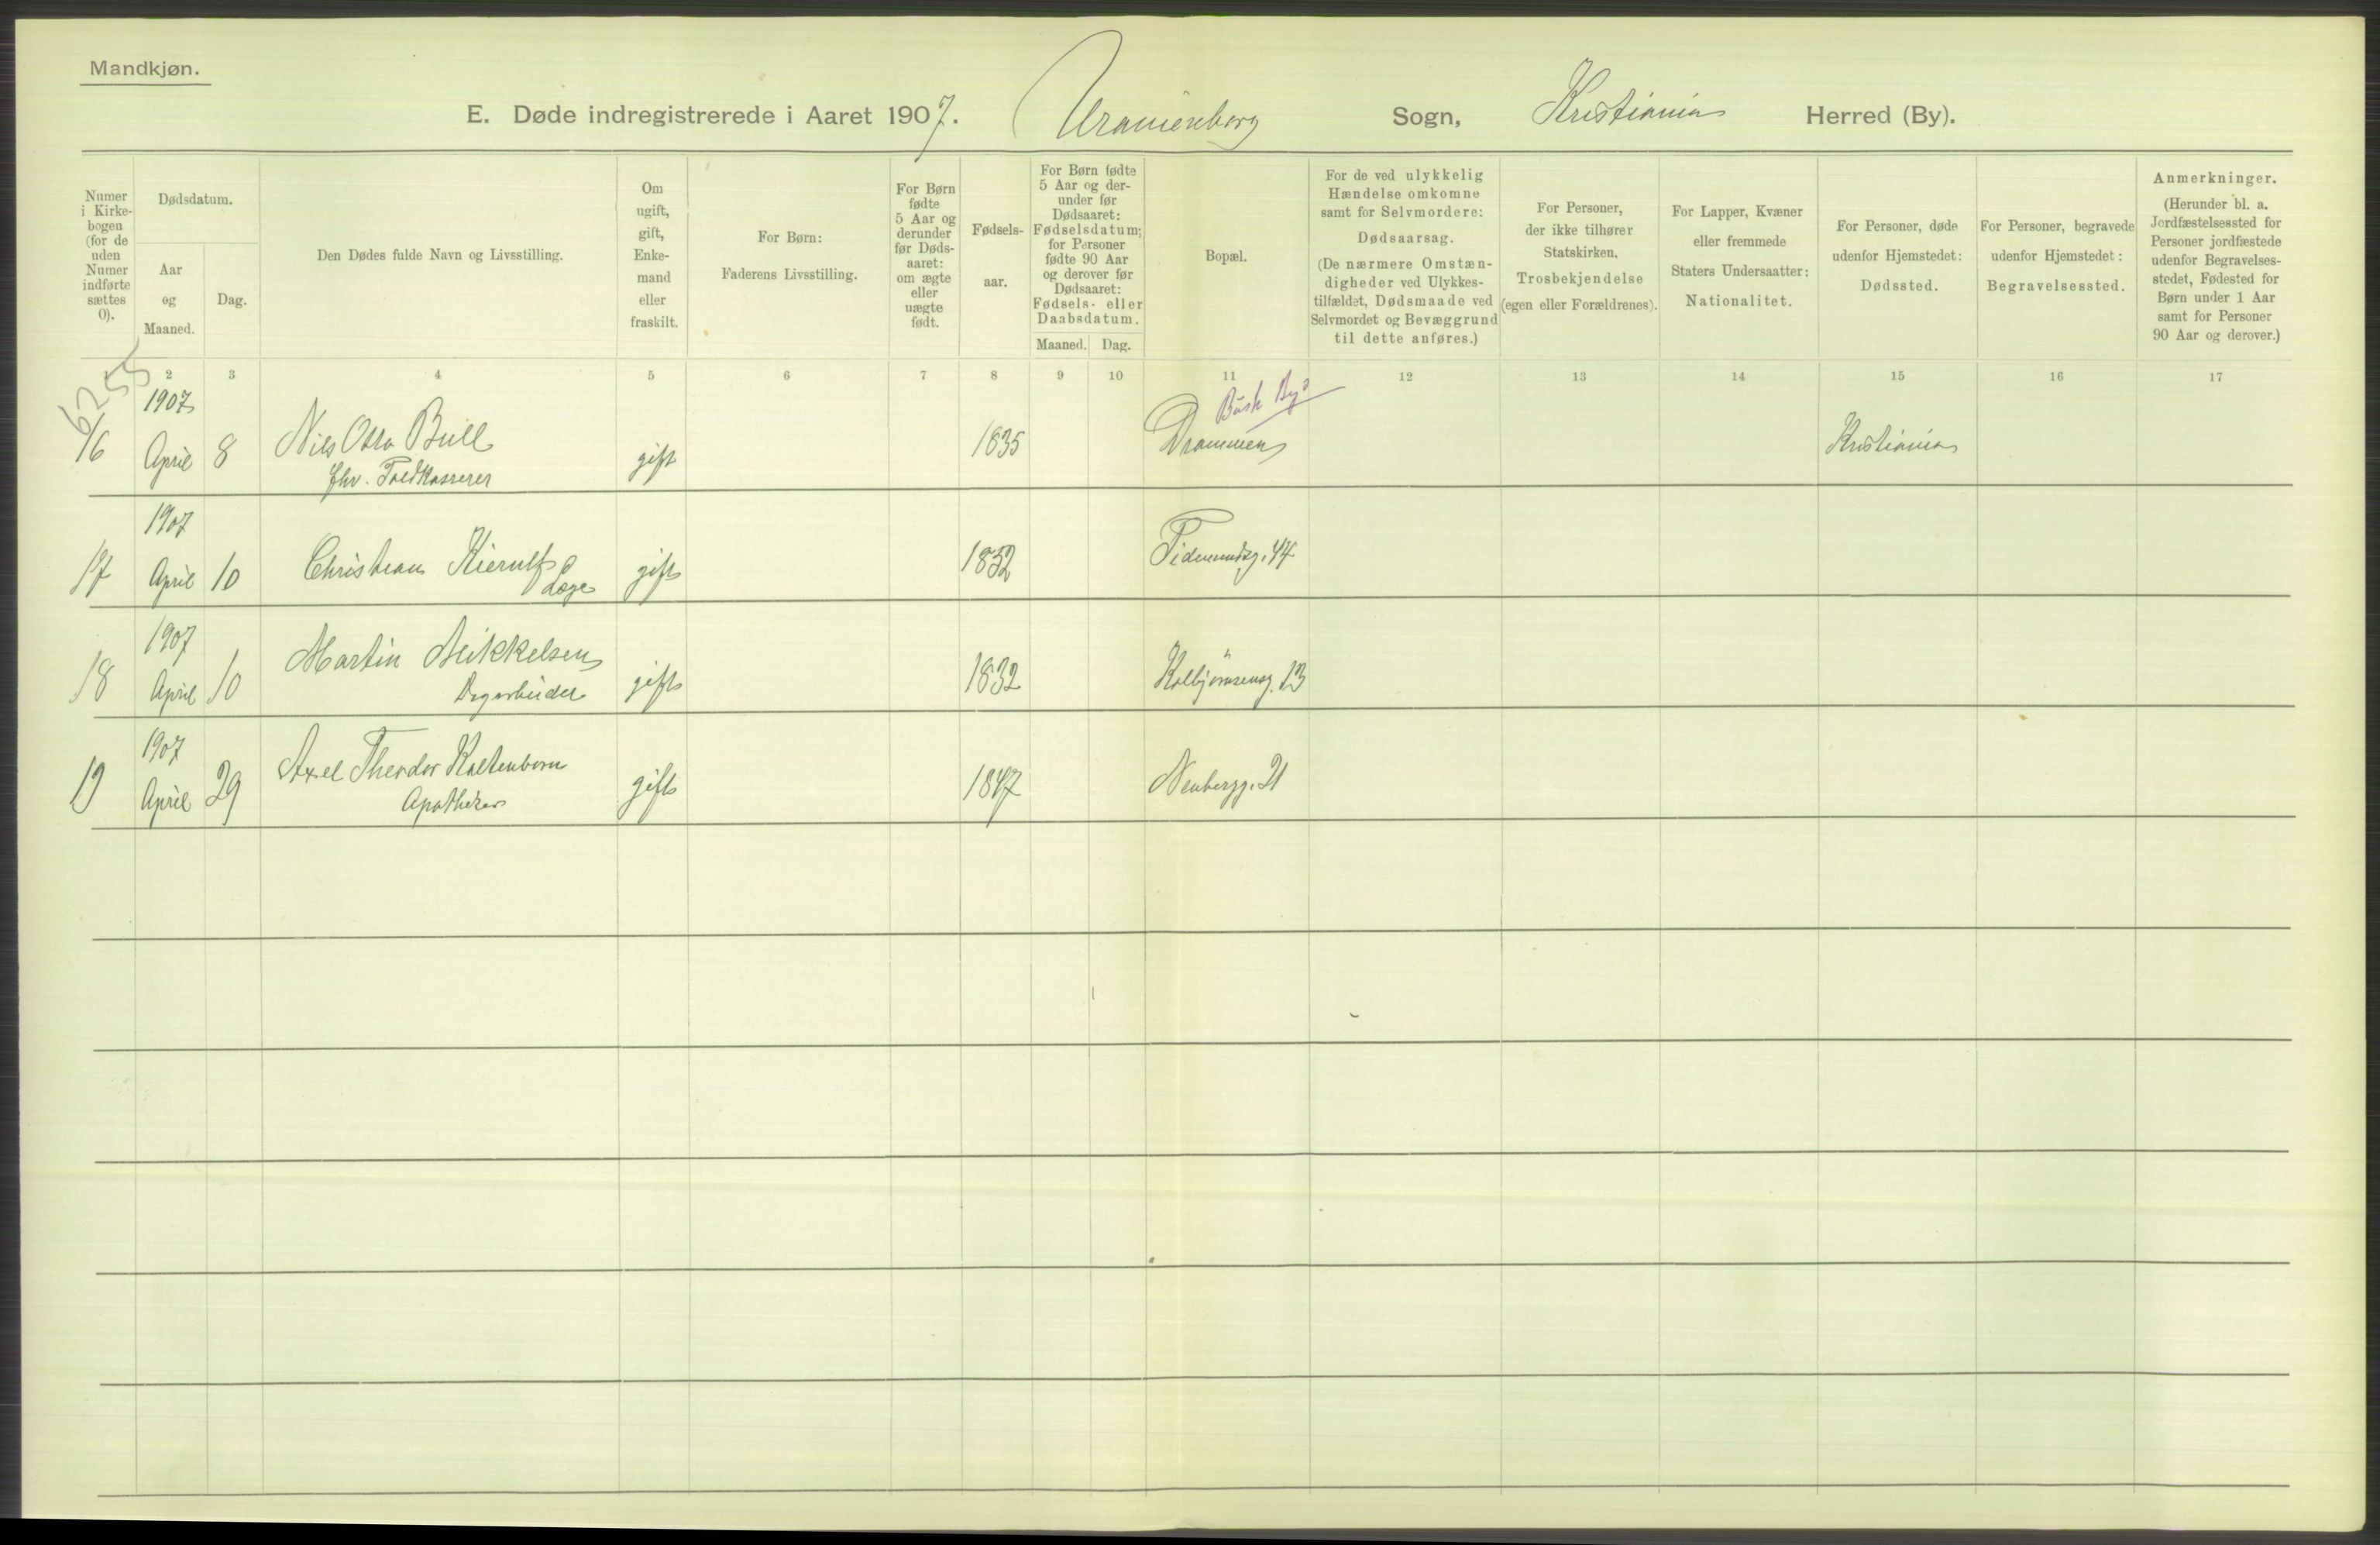 Mandkjøn.
E. Døde indregistrerede i Aaret 1907. Uranienborg Sogn, Kristiania Herred (By).
Numer i Kirke-bogen (for de uden Numer indførte sættes 0).
Dødsdatum.
Aar og Maaned.
Dag.
Den Dødes fulde Navn og Livsstilling.
Om ugift, gift, Enke-mand eller fraskilt.
For Børn: Faderens Livsstilling.
For Børn fødte 5 Aar og derunder før Døds-aaret: om ægte eller uægte født.
Fødsels-aar.
For Børn fødte 5 Aar og der-under før Dødsaaret: Fødselsdatum; for Personer fødte 90 Aar og derover før Dødsaaret: Fødsels- eller Daabsdatum.
Maaned. Dag.
Bopæl.
For de ved ulykkelig Hændelse omkomne samt for Selvmordere: Dødsaarsag. (De nærmere Omstæn-digheder ved Ulykkes-tilfældet, Dødsmaade ved Selvmordet og Bevæggrund til dette anføres.)
For Personer, der ikke tilhører Statskirken, Trosbekjendelse (egen eller Forældrenes).
For Lapper, Kvæner eller fremmede Staters Undersaatter: Nationalitet.
For Personer, døde udenfor Hjemstedet: Dødssted.
For Personer, begravede udenfor Hjemstedet: Begravelsessted.
Anmerkninger. (Herunder bl. a. Jordfæstelsessted for Personer jordfæstede udenfor Begravelses-stedet, Fødested for Børn under 1 Aar samt for Personer 90 Aar og derover.)
6255
2 3 4 5 6 7 8 9 10 11 12 13 14 15 16 17
1907 Busk By
16 April 8 Nils Otto Bull gift 1835 Drammen Kristiania
fhv. Toldkasserer
1907
17 April 10 Christian Kierulf gift 1832 Tidemandsg. 44
Læge
1907
18 April 10 Martin Mikkelsen gift 1832 Kolbjørnsensg. 13
Dagarbeider
1907
19 April 29 Axel Theodor Kaltenborn gift 1847 Neubergg. 21
Apotheker